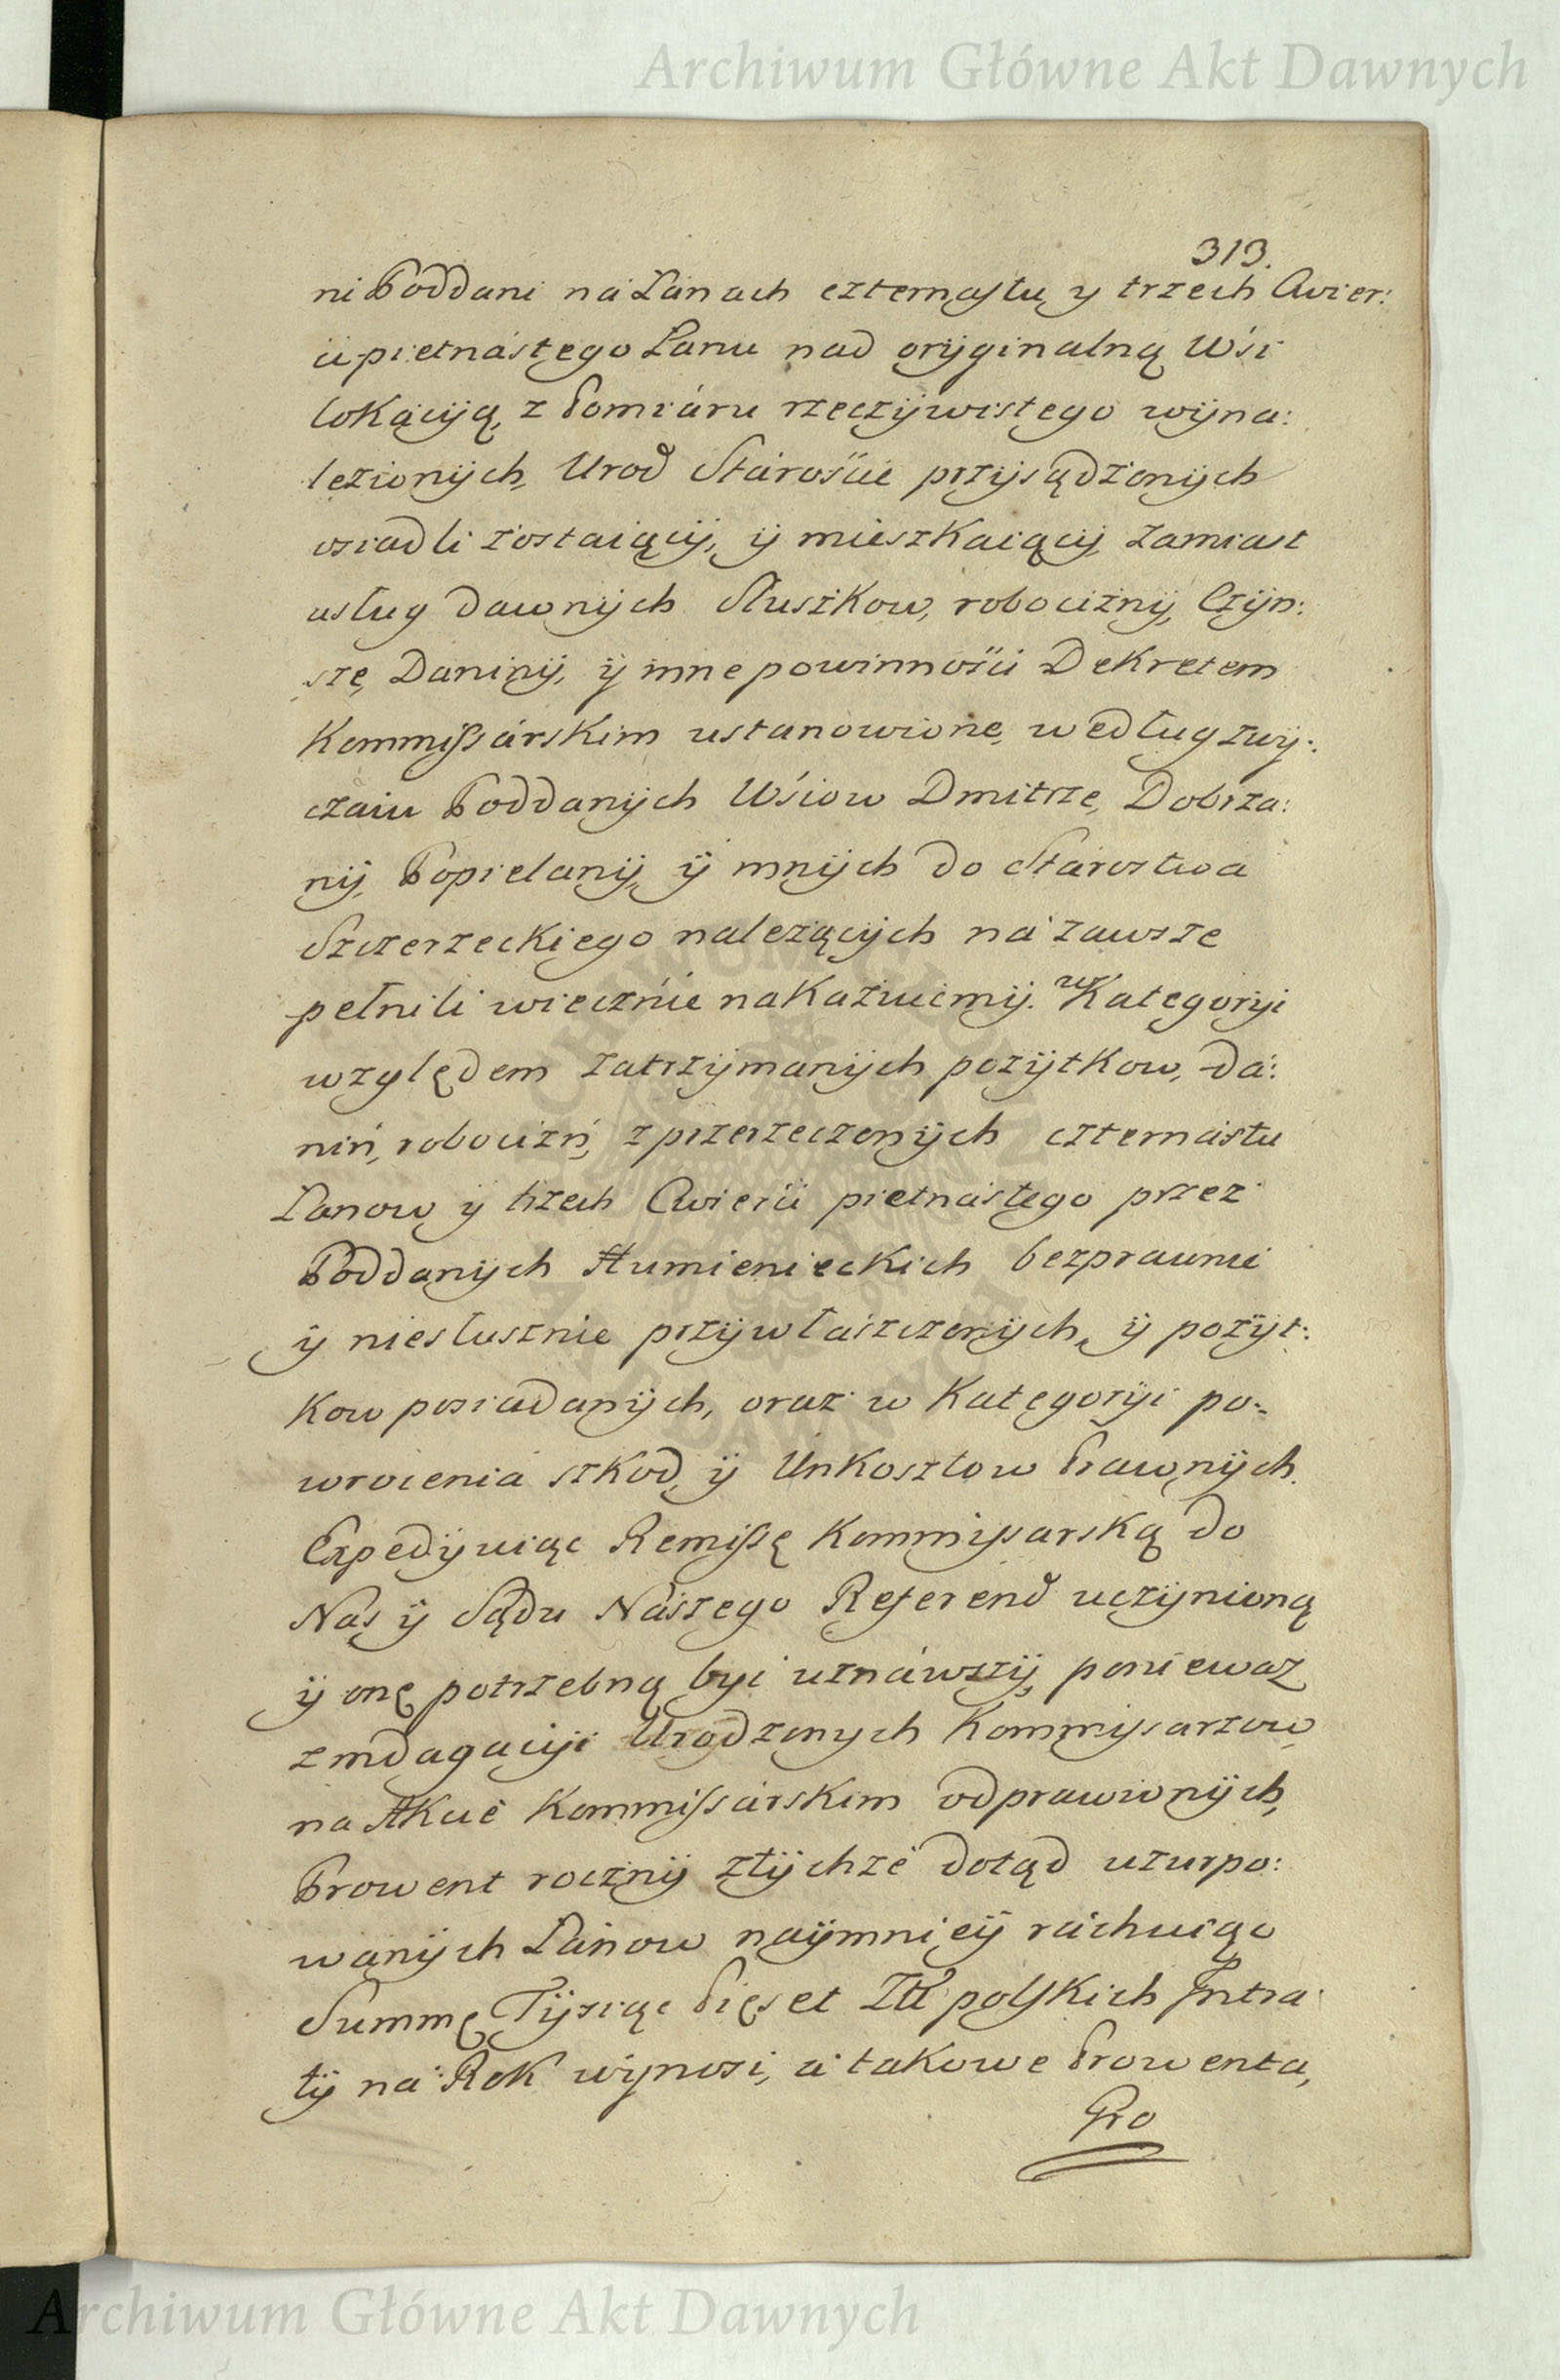 Archiwum Główne Akt Dawnych
313.
ni Poddani na Łanach czternastu y trzech Cwier:
ci pietnástego Łanu nad oryginalną Wśi
lokácyią, z Pomiáru rzeczywistego wyna:
lezionych, Urod Stárośćie przysądzonych
osiadli zostaiący, y mieszkaiący, zamiast
usług dawnych Służkow, robocizny, Czyn:
sze, Daniny, y inne powinnośći Dekretem
Kommissárskim ustanowione, według zwy:
czaiu Poddanych Wśiow Dmitrze, Dobrza:
ny, Popielany, y innych do Stárostwa
Szczerzeckiego nalezących ná zawsze
pełnili wiecznie nakazuiemy. w Kategoryi
względem zatrzymanych pozytkow, dá:
nin, robocizn, z przerzeczonych czternástu
Łanow, y trzech Cwierći pietnástego przez
Poddanych Humienieckich bezprawnie
y niesłusznie przywłászczonych, y pozyt:
kow posiadanych, oraz w Kategoryi po:
wrocenia szkod, y Unkosztow Prawnych.
Expedyuiąc Remissę Kommissarską do
Nas y Sądu Nászego Referend uczynioną
y onę potrzebną byc uznáwszy, poniewaz
z indagacyi Urodzonych Kommissarzow
na Akcie Kommissárskim odprawionych,
Prowent roczny z tychze dotąd uzurpo:
wanych Łánow naymniey ráchuiąc
Summę Tysiąc Pięset Złł polskich Intra:
ty ná Rok wynosi, á takowe Prowenta,
Pro
Archiwum Główne Akt Dawnych